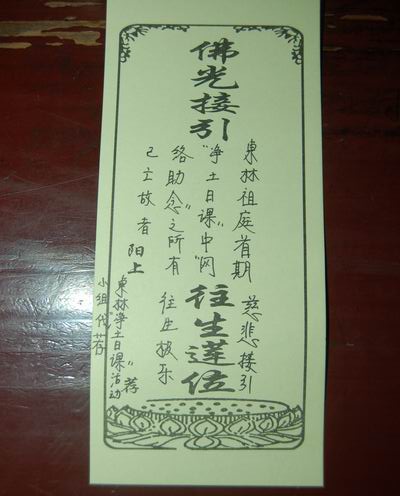 佛光接引
東林祖庭首期
"净土日课"中"网
络助念"之所有
已亡故者
慈悲接引
往生极乐
往生蓮位
阳上
東林"净土日课"活动
小组代荐
荐